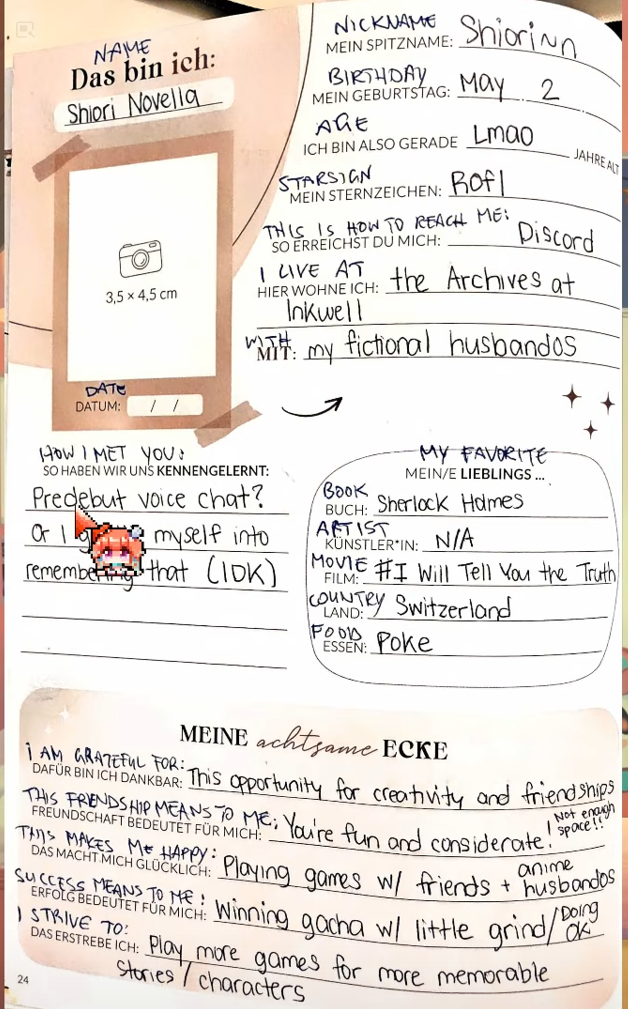 NAME
Das bin ich:
Shiori Novella
3,5 × 4,5 cm
DATE
DATUM: / /
NICKNAME
MEIN SPITZNAME: Shiorinn
BIRTHDAY
MEIN GEBURTSTAG: May 2
AGE
ICH BIN ALSO GERADE Lmao JAHRE ALT
STARSIGN
MEIN STERNZEICHEN: Rofl
THIS IS HOW TO REACH ME:
SO ERREICHST DU MICH: Discord
I LIVE AT
HIER WOHNE ICH: the Archives at
Inkwell
WITH
MIT: my fictional husbandos
HOW I MET YOU:
SO HABEN WIR UNS KENNENGELERNT:
Predebut voice chat?
Or I myself into
remembering that (IDK)
MY FAVORITE
MEIN/E LIEBLINGS ...
BOOK
BUCH: Sherlock Holmes
ARTIST
KÜNSTLER*IN: N/A
MOVIE
FILM: #I Will Tell You the Truth
COUNTRY
LAND: Switzerland
FOOD
ESSEN: Poke
MEINE achtsame ECKE
I AM GRATEFUL FOR:
DAFÜR BIN ICH DANKBAR: This opportunity for creativity and friendships
THIS FRIENDSHIP MEANS TO ME:
FREUNDSCHAFT BEDEUTET FÜR MICH: You're fun and considerate! Not enough space!!
THIS MAKES ME HAPPY:
DAS MACHT MICH GLÜCKLICH: Playing games w/ friends + anime husbandos
SUCCESS MEANS TO ME:
ERFOLG BEDEUTET FÜR MICH: Winning gacha w/ little grind/Doing ok
I STRIVE TO:
DAS ERSTREBE ICH: Play more games for more memorable
stories / characters
24